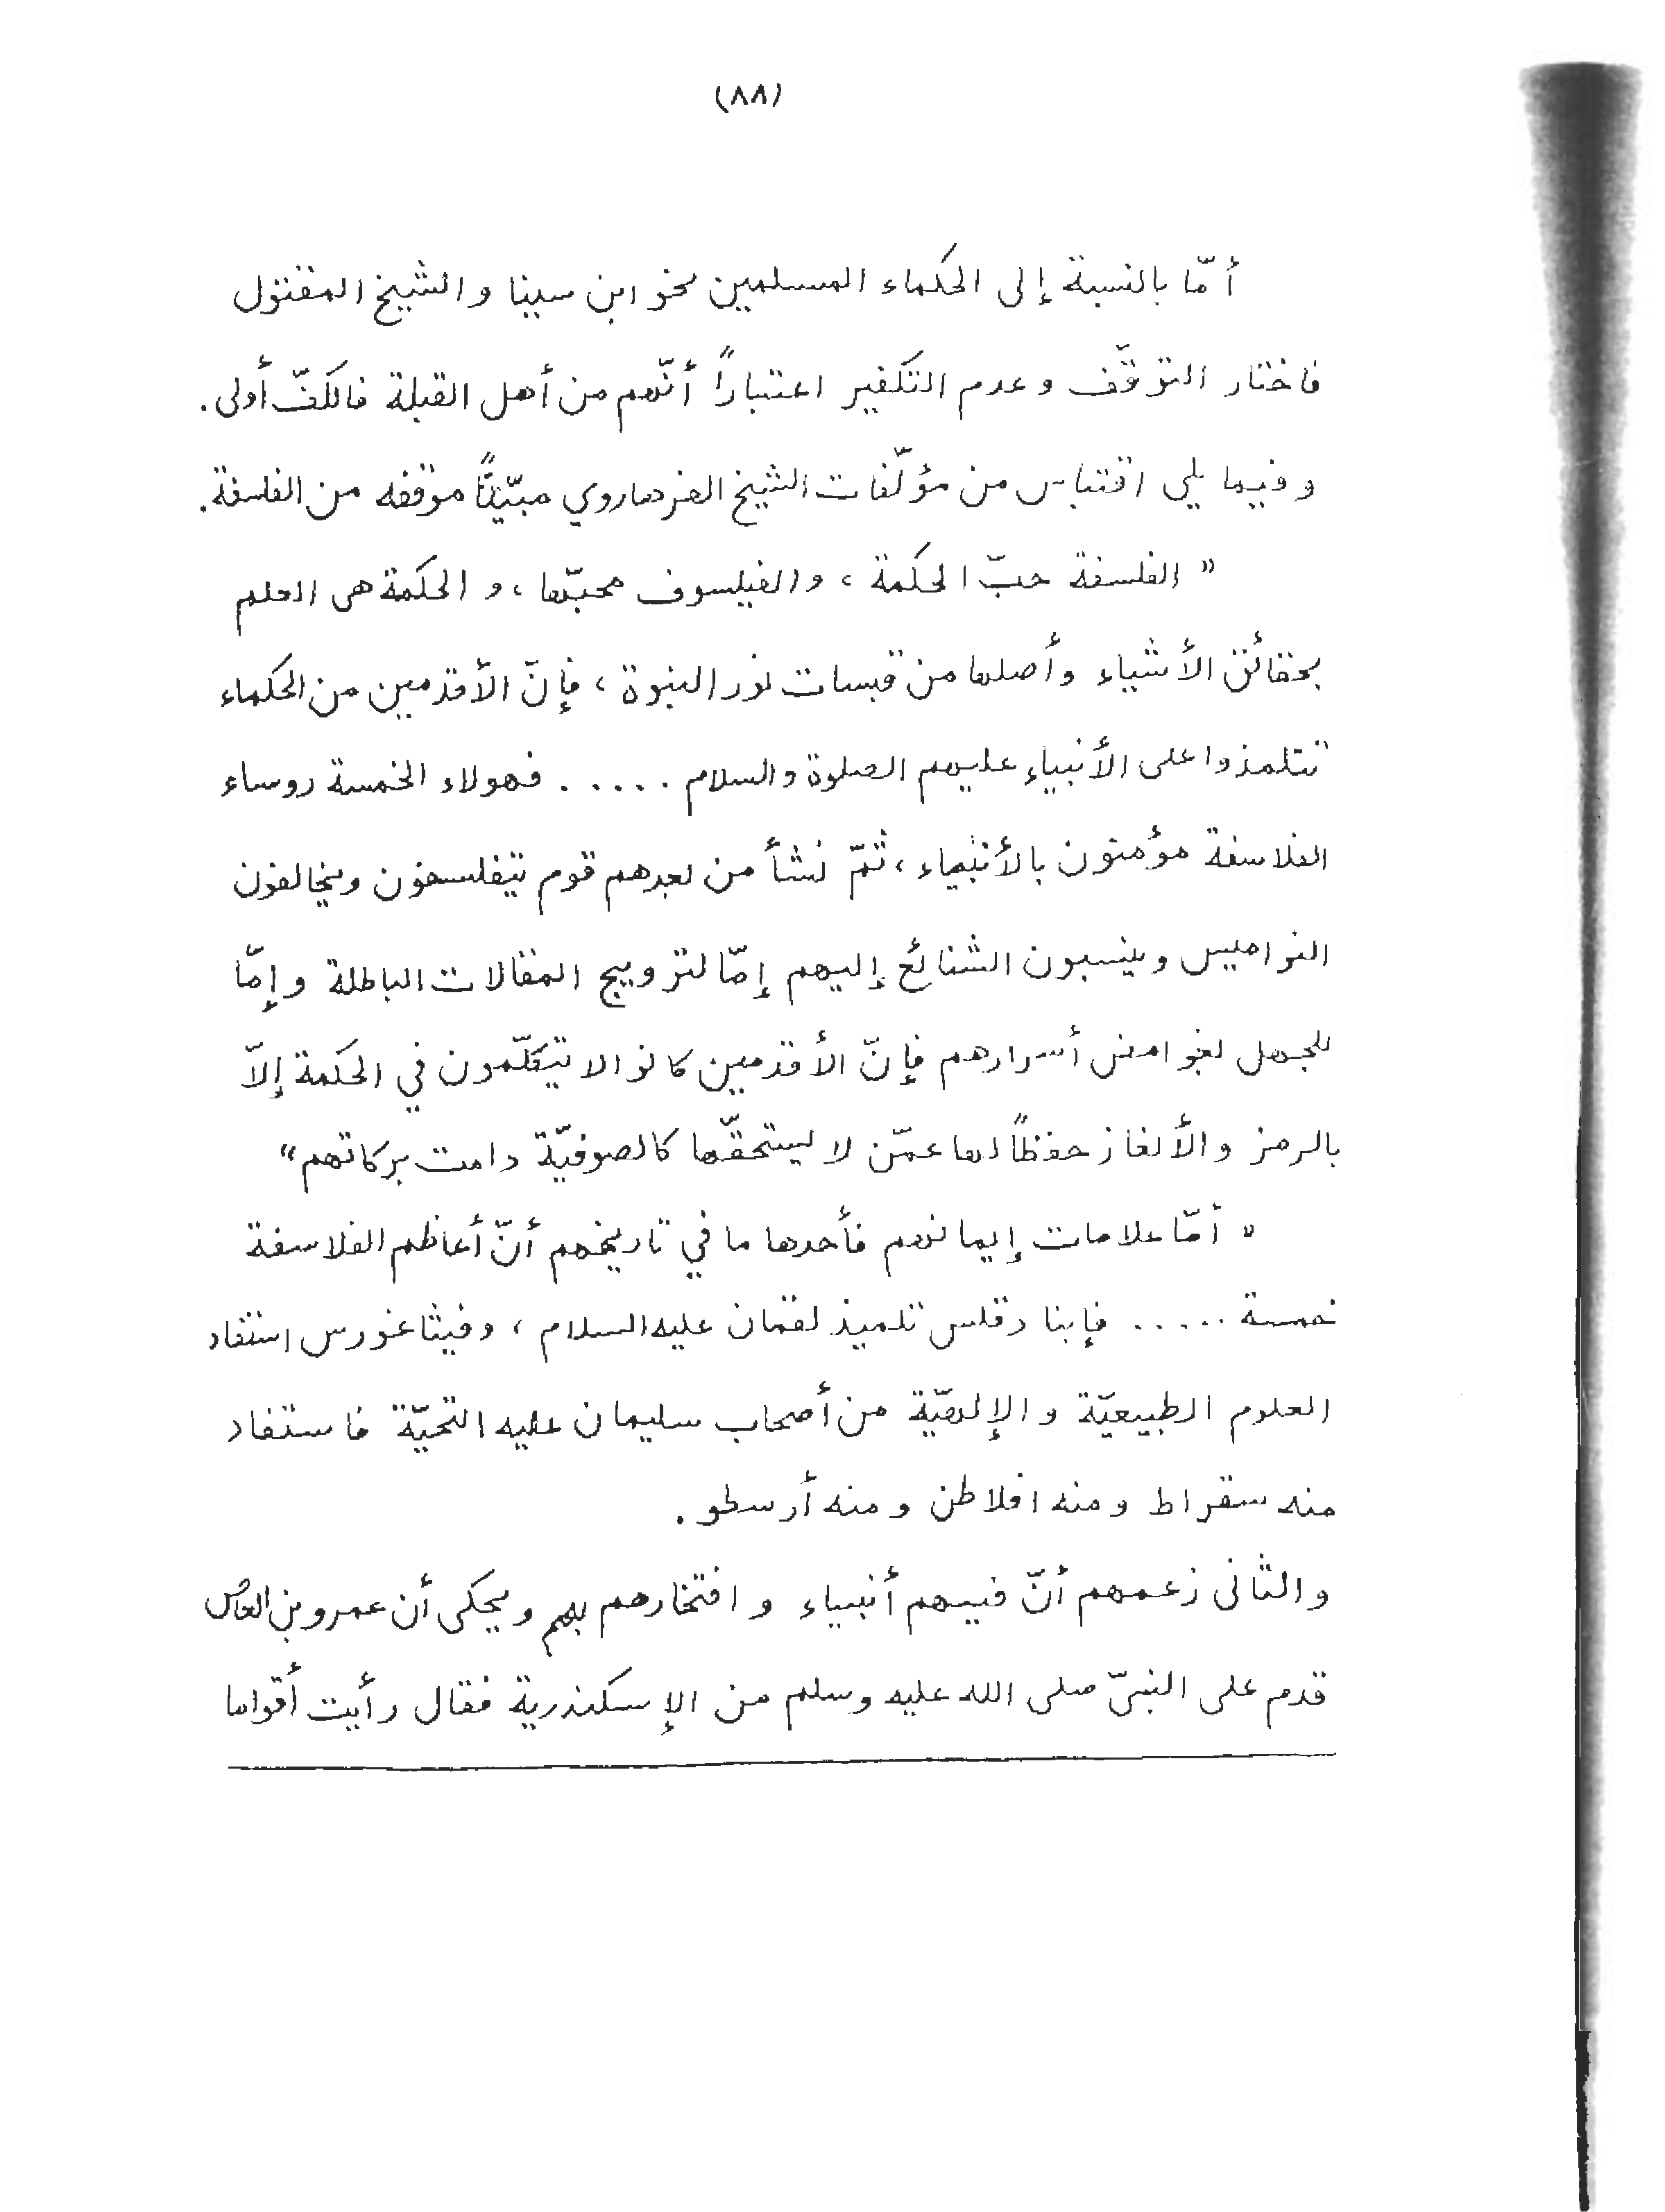 (٨٨)
أمّا بالنسبة إلى الحكماء المسلمين نحو ابن سينا و الشيخ المقتول
فاختار التوقّف و عدم التكفير اعتباراً أنّهم من أهل القبلة فالكفّ أولى .
و فيما يلي اقتباس من مؤلّفات الشيخ الفرهاروي مبيّناً موقفه من الفلسفة.
" الفلسفة حبّ الحكمة ، و الفيلسوف محبّها ، و الحكمة هى العلم
بحقائق الأشياء وأصلها من قبسات نور النبوة ، فإنّ الأقدمين من الحكماء
تتلمذوا على الأنبياء عليهم الصلوة والسلام ..... فهولاء الخمسة روساء
الفلاسفة مؤمنون بالأنبياء ، ثمّ نشأ من بعدهم قوم يتفلسفون ويخالفون
النواميس وينسبون الشنائع إليهم إمّا لترويج المقالات الباطلة و إمّا
للجهل لغوامض أسرارهم فإنّ الأقدمين كانوا لا يتكلّمون في الحكمة إلاّ
بالرمز و الألغاز حفظاً لها عمّن لا يستحقّها كالصوفيّة دامت بركاتهم "
" أمّا علامات إيمانهم فأحدها ما في تاريخهم أنّ أعاظم الفلاسفة
خمسة ..... فإبنا دقلس تلميذ لقمان عليه السلام ، وفيثاغورس استفاد
العلوم الطبيعيّة و الإلهيّة من أصحاب سليمان عليه التحيّة فاستفاد
منه سقراط و منه افلاطن و منه أرسطو .
و الثانى زعمهم أنّ فيهم أنبياء و افتخارهم بهم و يحكى أن عمرو بن العاص
قدم على النبىّ صلى الله عليه وسلم من الإسكندرية فقال رأيت أقواما